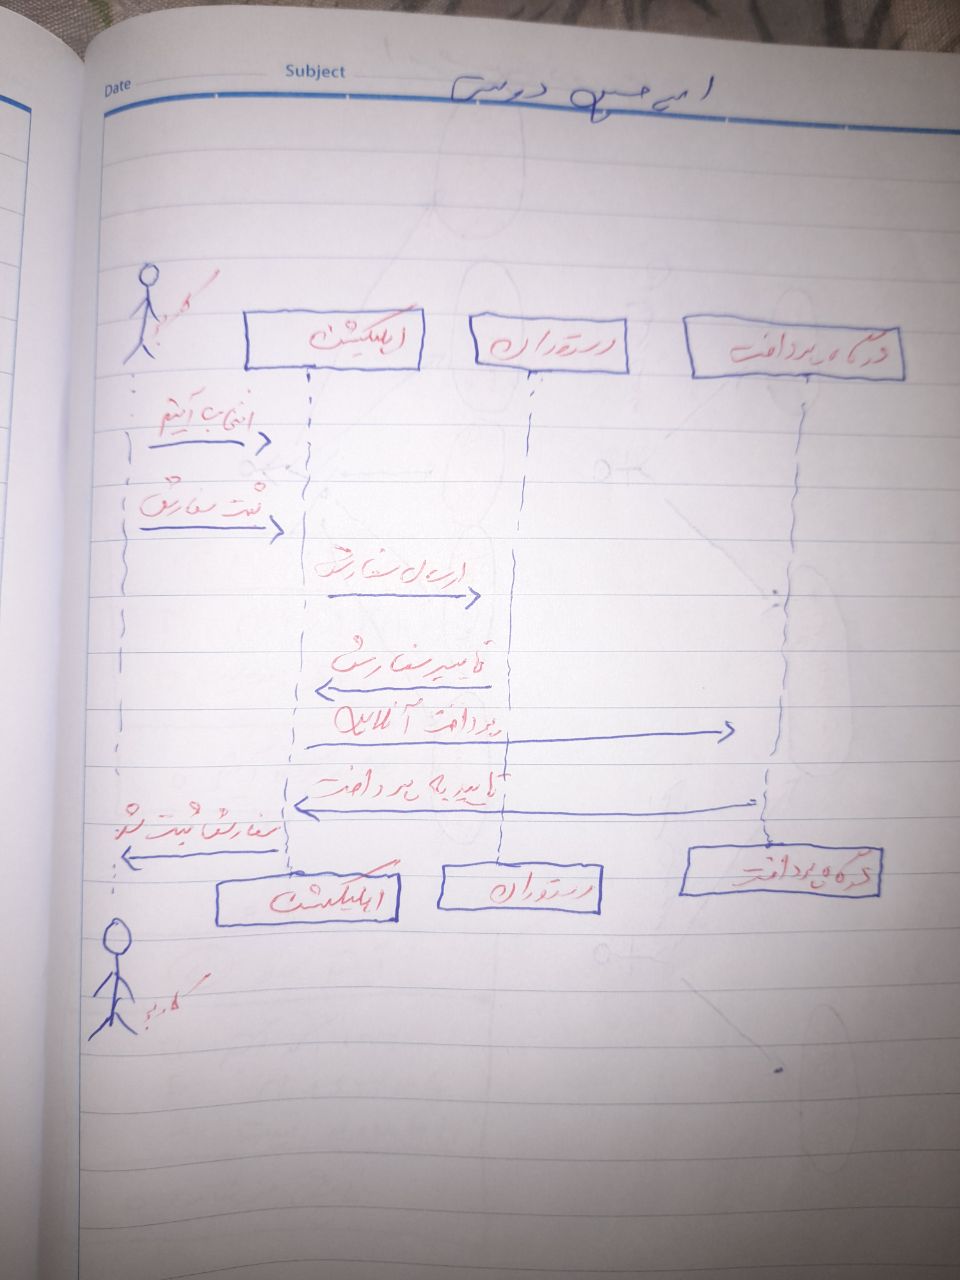 Date
Subject
امیرحسین دوستی
کاربر
اپلیکیشن
رستوران
درگاه پرداخت
انتخاب آیتم
ثبت سفارش
ارسال سفارش
تایید سفارش
پرداخت آنلاین
تاییدیه پرداخت
سفارش ثبت شد
اپلیکیشن
رستوران
درگاه پرداخت
کاربر